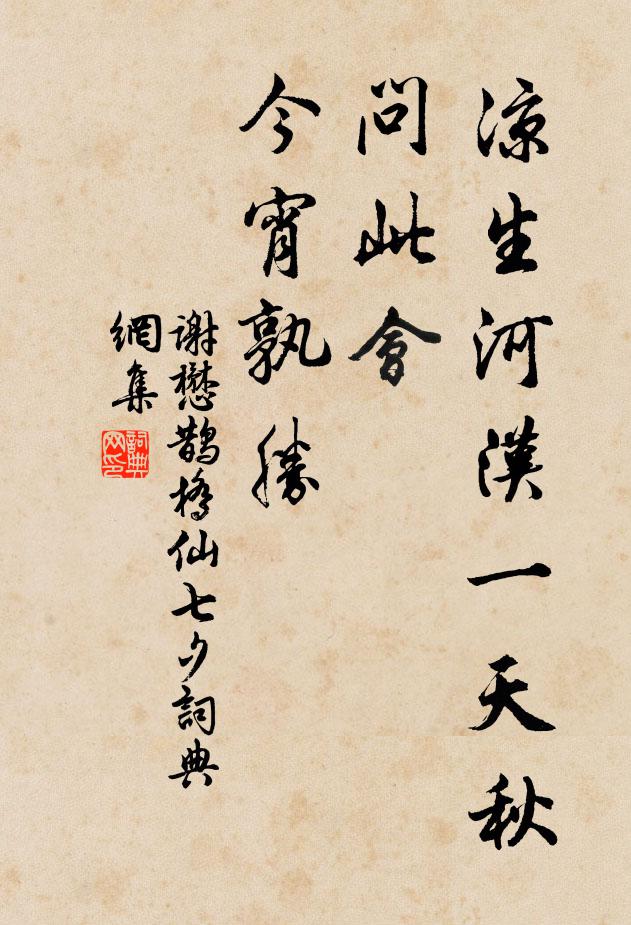 凉生河漢一天秋
問此會
今宵孰勝
谢懋鵲橋仙七夕詞典
網集
詞典
网印